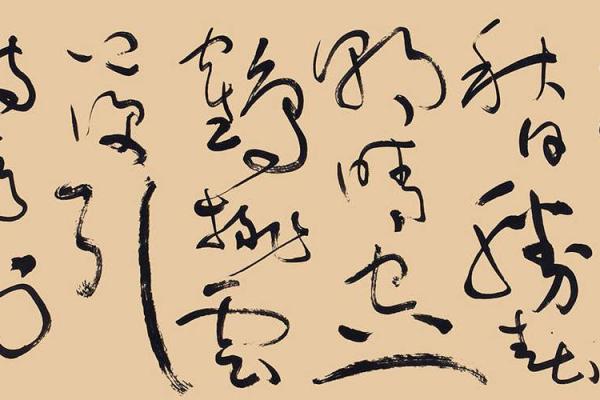 秋日勝春
朝晴空一
鶴排雲
上便引